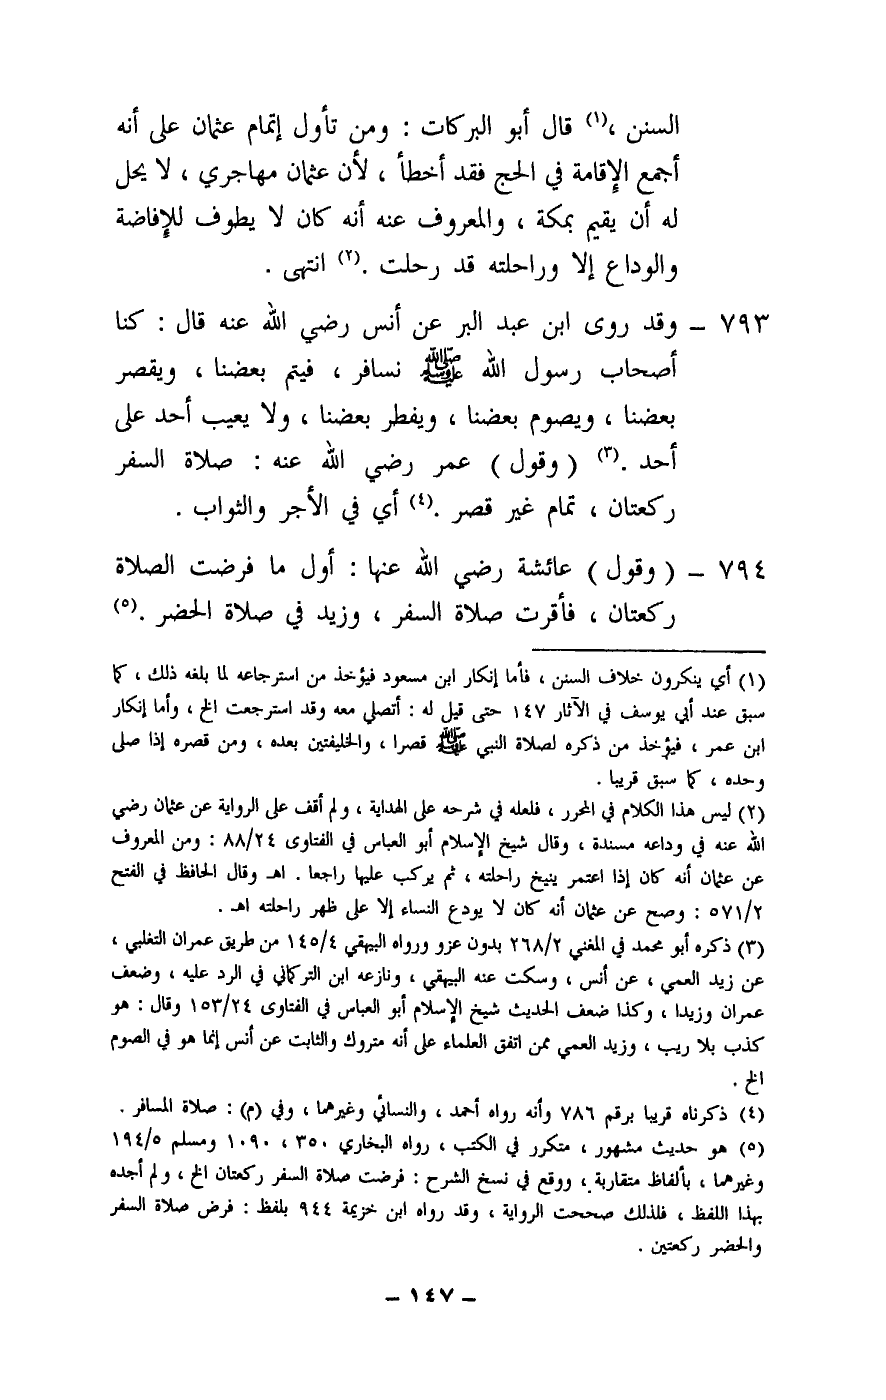 السنن ،(١) قال أبو البركات : ومن تأول إتمام عثمان على أنه
أجمع الإقامة في الحج فقد أخطأ ، لأن عثمان مهاجري ، لا يحل
له أن يقيم بمكة ، والمعروف عنه أنه كان لا يطوف للإفاضة
والوداع إلا وراحلته قد رحلت .(٢) انتهى .
٧٩٣ – وقد روى ابن عبد البر عن أنس رضي الله عنه قال : كنا
أصحاب رسول الله ﷺ نسافر ، فيتم بعضنا ، ويقصر
بعضنا ، ويصوم بعضنا ، ويفطر بعضنا ، ولا يعيب أحد على
أحد .(٣) ( وقول ) عمر رضي الله عنه : صلاة السفر
ركعتان ، تمام غير قصر .(٤) أي في الأجر والثواب .
٧٩٤ – ( وقول ) عائشة رضي الله عنها : أول ما فرضت الصلاة
ركعتان ، فأقرت صلاة السفر ، وزيد في صلاة الحضر .(٥)
(١) أي ينكرون خلاف السنن ، فأما إنكار ابن مسعود فيؤخذ من استرجاعه لما بلغه ذلك ، كما
سبق عند أبي يوسف في الآثار ١٤٧ حتى قيل له : أتصلي معه وقد استرجعت الخ ، وأما إنكار
ابن عمر ، فيؤخذ من ذكره لصلاة النبي ﷺ قصرا ، والخليفتين بعده ، ومن قصره إذا صلى
وحده ، كما سبق قريبا .
(٢) ليس هذا الكلام في المحرر ، فلعله في شرحه على الهداية ، ولم أقف على الرواية عن عثمان رضي
الله عنه في وداعه مسندة ، وقال شيخ الإسلام أبو العباس في الفتاوى ٨٨/٢٤ : ومن المعروف
عن عثمان أنه كان إذا اعتمر ينيخ راحلته ، ثم يركب عليها راجعا . اهـ وقال الحافظ في الفتح
٥٧١/٢ : وصح عن عثمان أنه كان لا يودع النساء إلا على ظهر راحلته اهـ .
(٣) ذكره أبو محمد في المغني ٢٦٨/٢ بدون عزو ورواه البيهقي ١٤٥/٤ من طريق عمران التغلبي ،
عن زيد العمي ، عن أنس ، وسكت عنه البيهقي ، ونازعه ابن التركماني في الرد عليه ، وضعف
عمران وزيدا ، وكذا ضعف الحديث شيخ الإسلام أبو العباس في الفتاوى ١٥٣/٢٤ وقال : هو
كذب بلا ريب ، وزيد العمي ممن اتفق العلماء على أنه متروك والثابت عن أنس إنما هو في الصوم
الخ .
(٤) ذكرناه قريبا برقم ٧٨٦ وأنه رواه أحمد ، والنسائي وغيرهما ، وفي (م) : صلاة المسافر .
(٥) هو حديث مشهور ، متكرر في الكتب ، رواه البخاري ٣٥٠ ، ١٠٩٠ ومسلم ١٩٤/٥
وغيرهما ، بألفاظ متقاربة ، ووقع في نسخ الشرح : فرضت صلاة السفر ركعتان الخ ، ولم أجده
بهذا اللفظ ، فلذلك صححت الرواية ، وقد رواه ابن خزيمة ٩٤٤ بلفظ : فرض صلاة السفر
والحضر ركعتين .
– ١٤٧ –